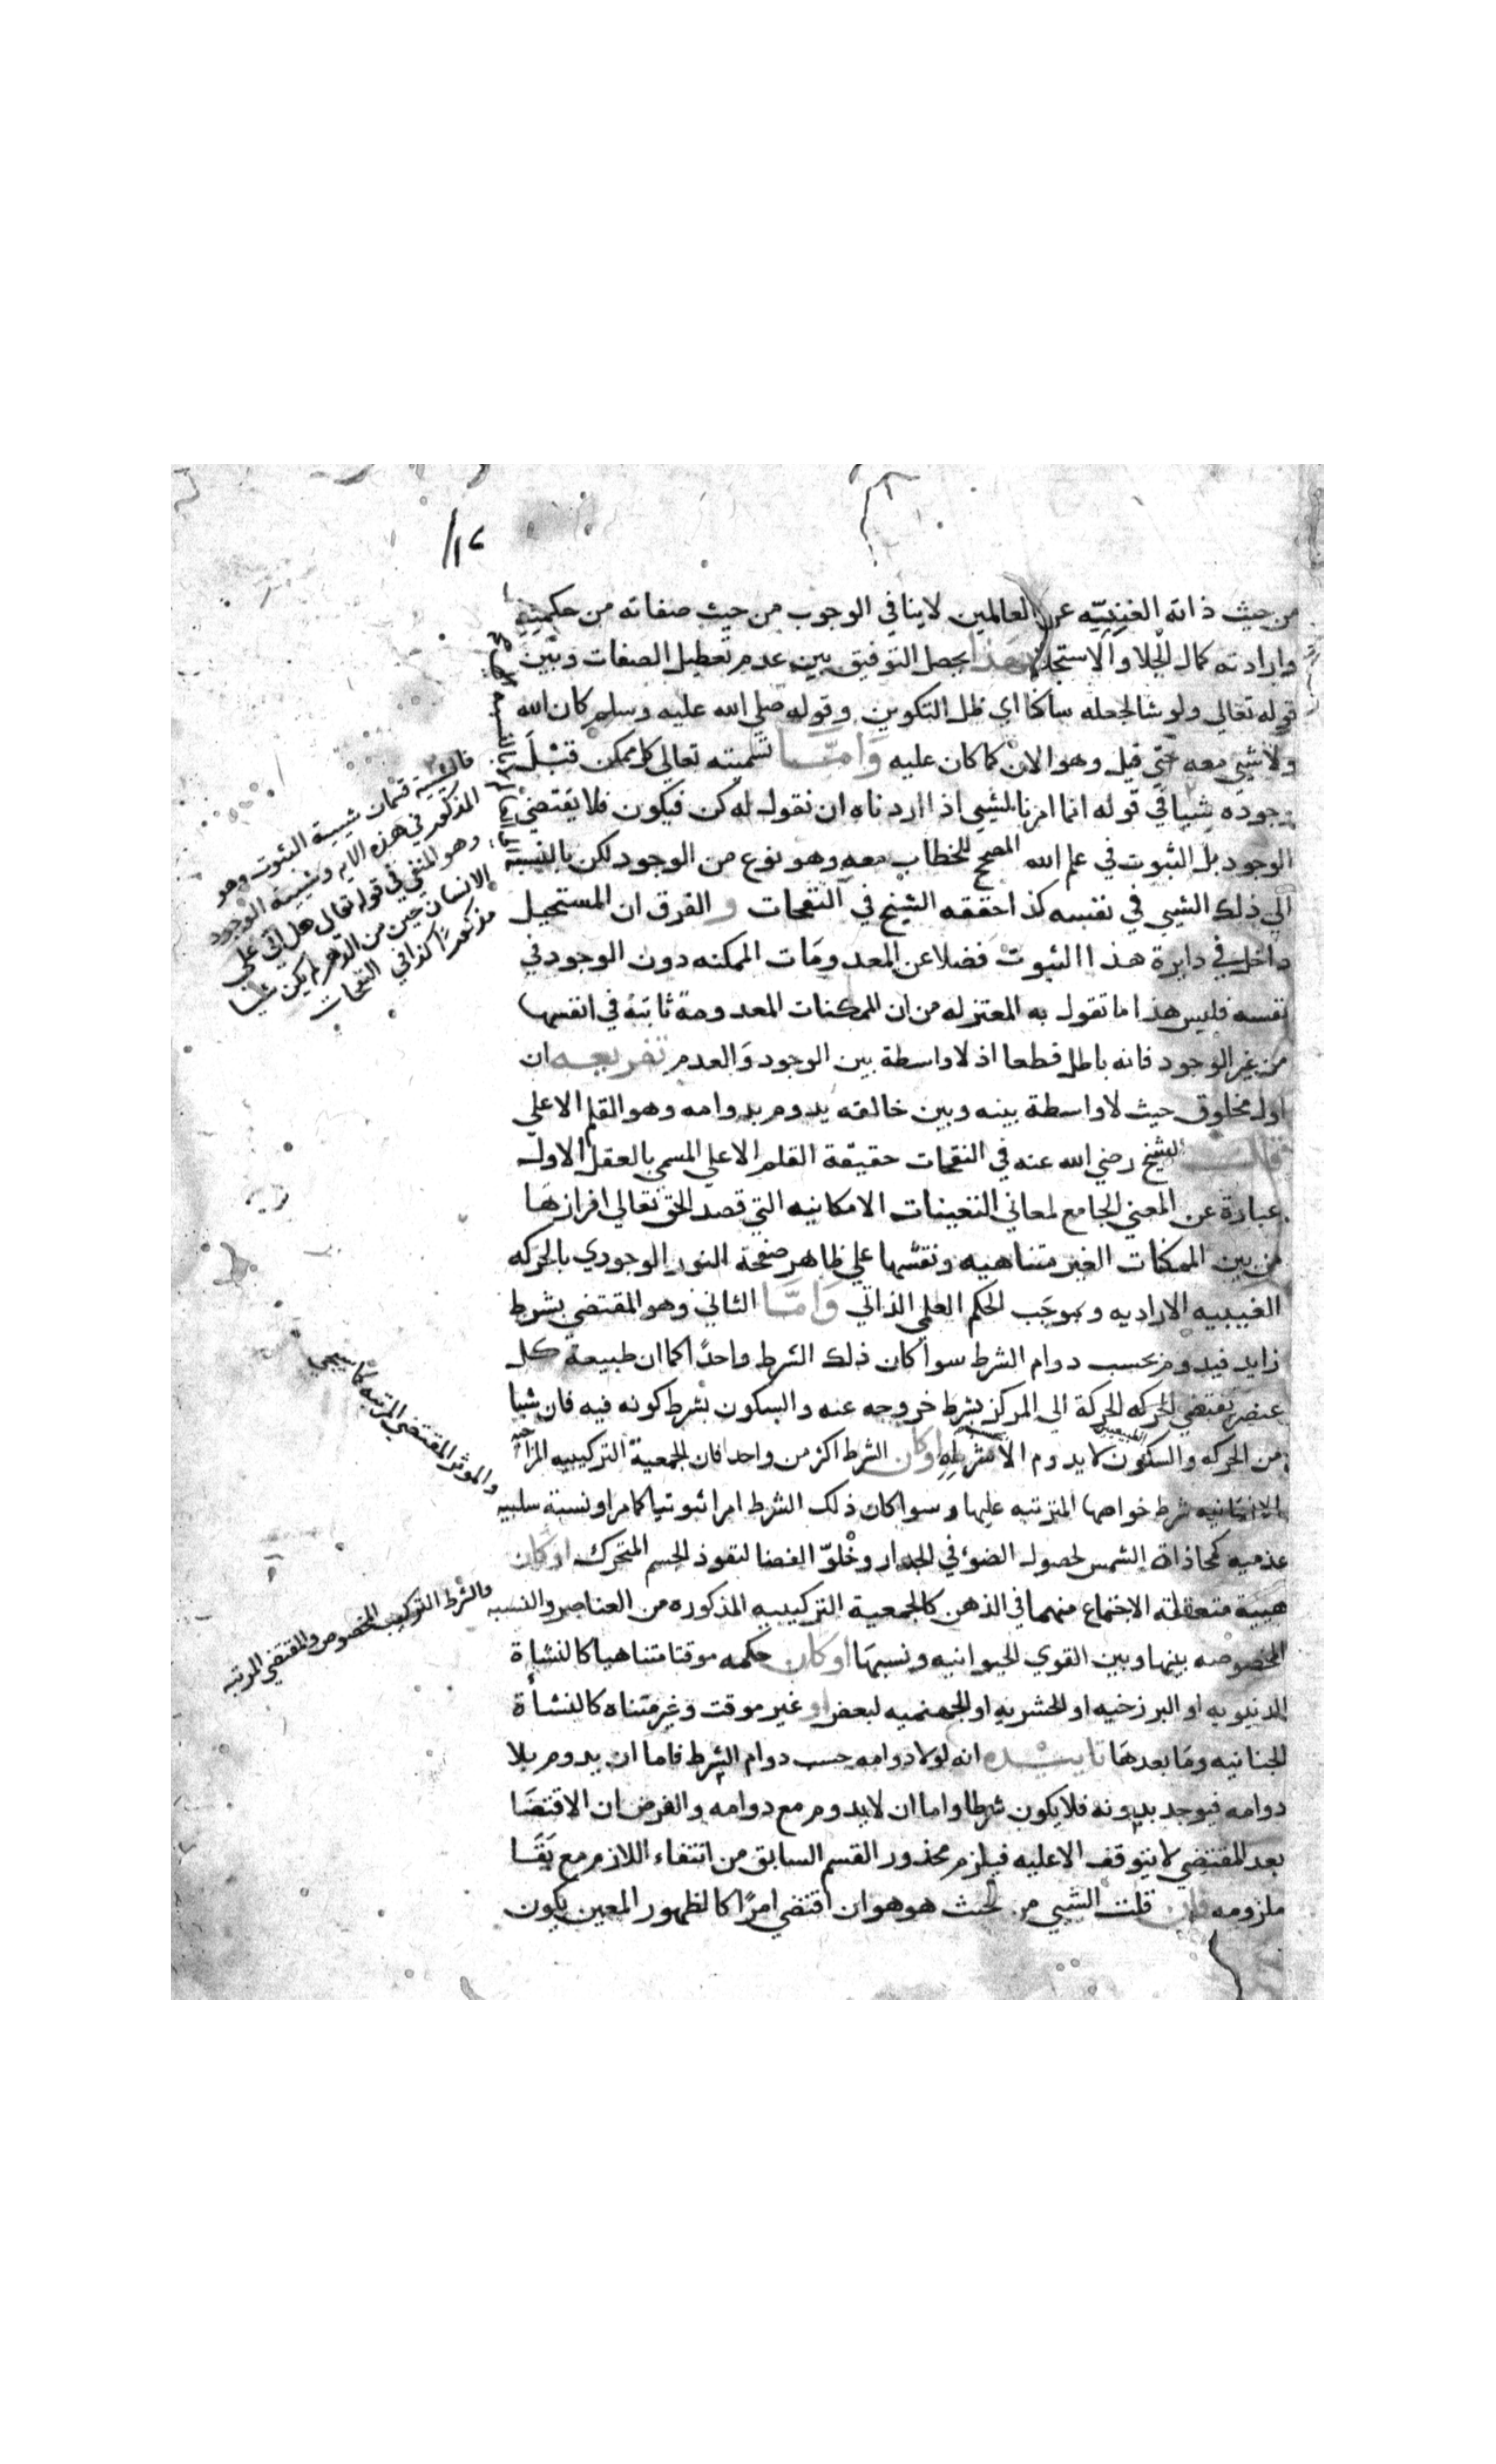 ١٤
من حيث ذاته الغنيّه عن العالمين لاينافي الوجوب من حيث صفاته من حكمته
وارادته كمال الجلا والاستجلا وبهذا يحصل التوفيق بين عدم تعطيل الصفات وبين
قوله تعالي ولو شا لجعله ساكنا اي ظل التكوين وقوله صلي الله عليه وسلم كان الله
ولا شيى معه حتي قيل وهو الان كما كان عليه وَامّا تسميته تعالي كل ممكن قبل
وجوده شيا في قوله انما امرنا لشيى اذا اردناه ان نقول له كن فيكون فلا يقتضي
الوجود بل الثبوت في علم الله المصحح للخطاب معه وهو نوع من الوجود لكن بالنسبة
الي ذلك الشيى في نفسه كذا حققه الشيخ في النفحات و الفرق ان المستحيل
داخل في دايرة هذا الثبوت فضلا عن المعدومات الممكنه دون الوجود في
نفسه فليس هذا ما تقول به المعتزله من ان الممكنات المعدومة ثابتة في انفسها
من غير الوجود فانه باطل قطعا اذ لا واسطة بين الوجود والعدم تفريعه ان
اول مخلوق حيث لا واسطة بينه وبين خالقه يدوم بدوامه وهو القلم الاعلي
قال الشيخ رضي الله عنه في النفحات حقيقة القلم الاعلي المسمي بالعقل الاول
عبارة عن المعني الجامع لمعاني التعينات الامكانيه التي قصد الحق تعالي افرازها
من بين الممكنات الغير متناهيه ونقشها علي ظاهر صفحة النور الوجودي بالحركه
الغيبيه الاراديه وبموجب الحكم العلمي الذاتي وَامّا الثاني وهو المقتضي بشرط
زايد فيدوم بحسب دوام الشرط سوا كان ذلك الشرط واحدًا كما ان طبيعة كل
عنصر تقتضي الحركه الحركة الي المركز بشرط خروجه عنه والسكون بشرط كونه فيه فان شيا
من الحركه والسكون الطبيعيين لا يدوم الا بشرطه او كان الشرط اكثر من واحد فان الجمعية التركيبيه المزاجيه
الانسانيه شرط خواصها المترتبه عليها وسوا كان ذلك الشرط امرا ثبوتيا كما مر او نسبة سلبيه
عدميه كمحاذاة الشمس لحصول الضوء في الجدار وخلوّ الفضا لنفوذ الجسم المتحرك او كان
هيية متعقلة الاجتماع منهما في الذهن كالجمعية التركيبيه المذكوره من العناصر والنسبه
المخصوصه بينها وبين القوي الحيوانيه ونسبها او كان حكمه موقتا متناهيا كالنشاة
الدنيويه او البرزخيه او الحشريه او الجهنميه لبعض او غير موقت وغير متناه كالنشأة
الجنانيه وما بعدها تاييده انه لولا دوامه حسب دوام الشرط فاما ان يدوم بلا
دوامه فيوجد بدونه فلا يكون شرطا واما ان لا يدوم مع دوامه والفرض ان الاقتضا
بعد المقتضي لا يتوقف الا عليه فيلزم محذور القسم السابق من انتفاء اللازم مع بقا
ملزومه فان قلت الشيى من حيث هو هو ان اقتضي امرًا كالظهور المعين يكون
فالشيية قسمان شيية الثبوت وهو
المذكور في هذه الايه وشيية الوجود
وهو المنفي في قوله تعالي هل اتي علي
الانسان حين من الدهر لم يكن شيا
مذكورًا كذا في النفحات
والموثر المقتضي المرتبه كما سيجي
والشرط التركيب المخصوص والمقتضي المرتبه